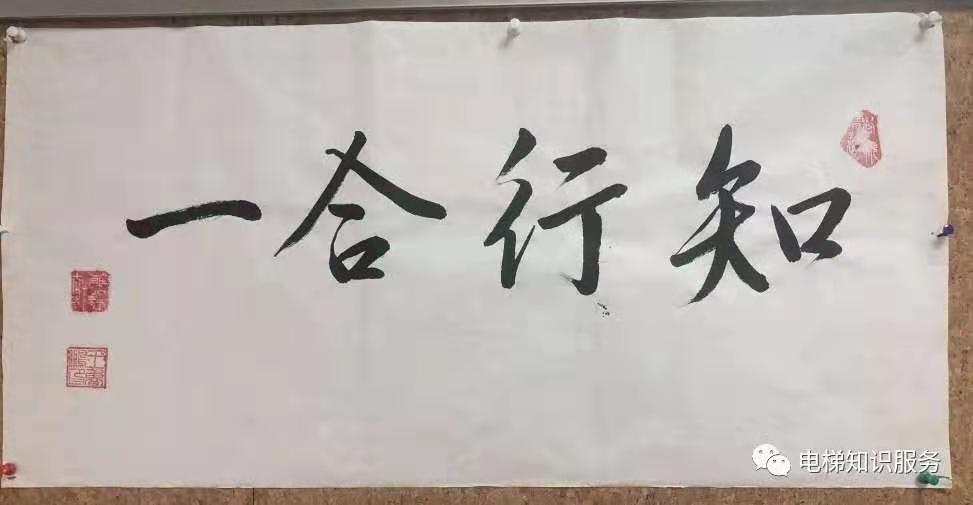 知行合一
电梯知识服务